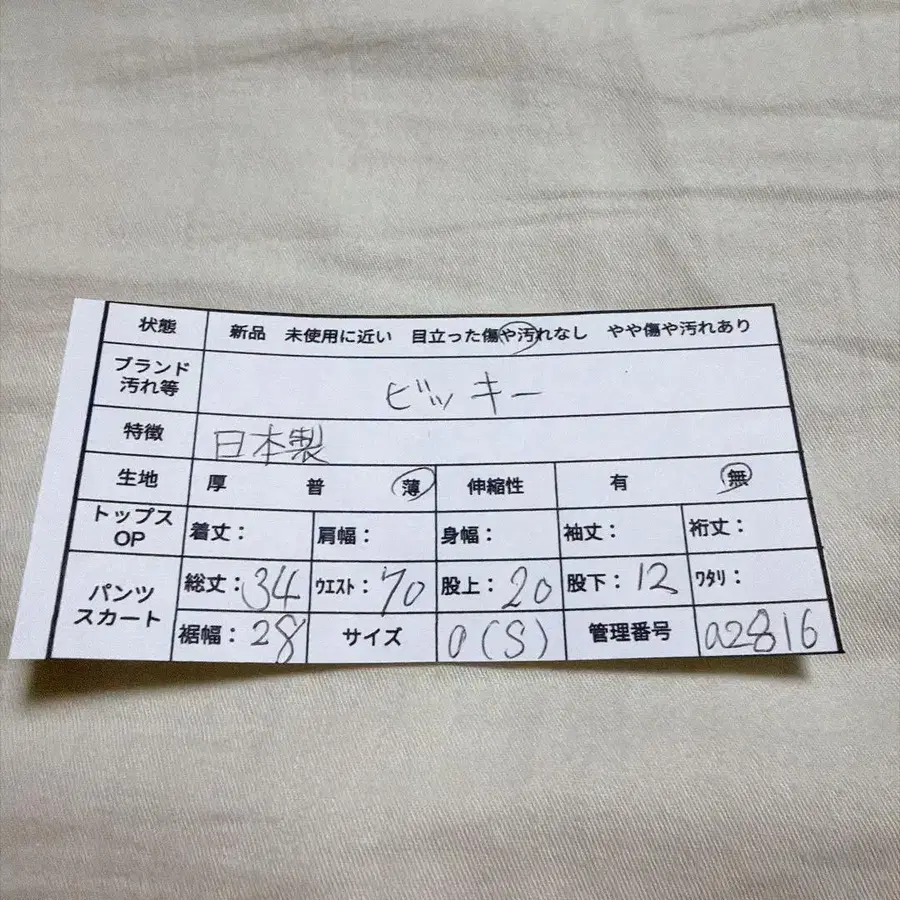 状態 新品 未使用に近い 目立った傷や汚れなし やや傷や汚れあり
ブランド
汚れ等
ビッキー
特徴 日本製
生地 厚 普 薄 伸縮性 有 無
トップス
OP
着丈: 肩幅: 身幅: 袖丈: 裄丈:
パンツ
スカート
総丈:34 ウエスト:70 股上:20 股下:12 ワタリ:
裾幅:28 サイズ 0(S) 管理番号 a2816